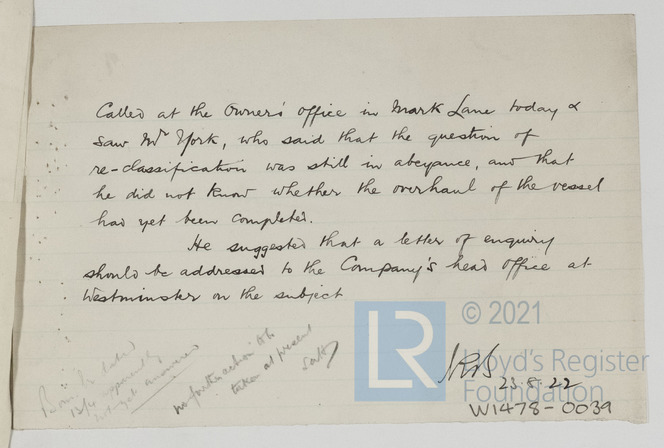 Called at the Owner's office in Mark Lane today &
saw Mr York, who said that the question of
re-classification was still in abeyance, and that
he did not know whether the overhaul of the vessel
had yet been completed.
He suggested that a letter of enquiry
should be addressed to the Company's head office at
Westminster on the subject
not yet answered
no further action to be
taken at present
LR
© 2021
Lloyd's Register
Foundation
23.5.22
W1478-0039